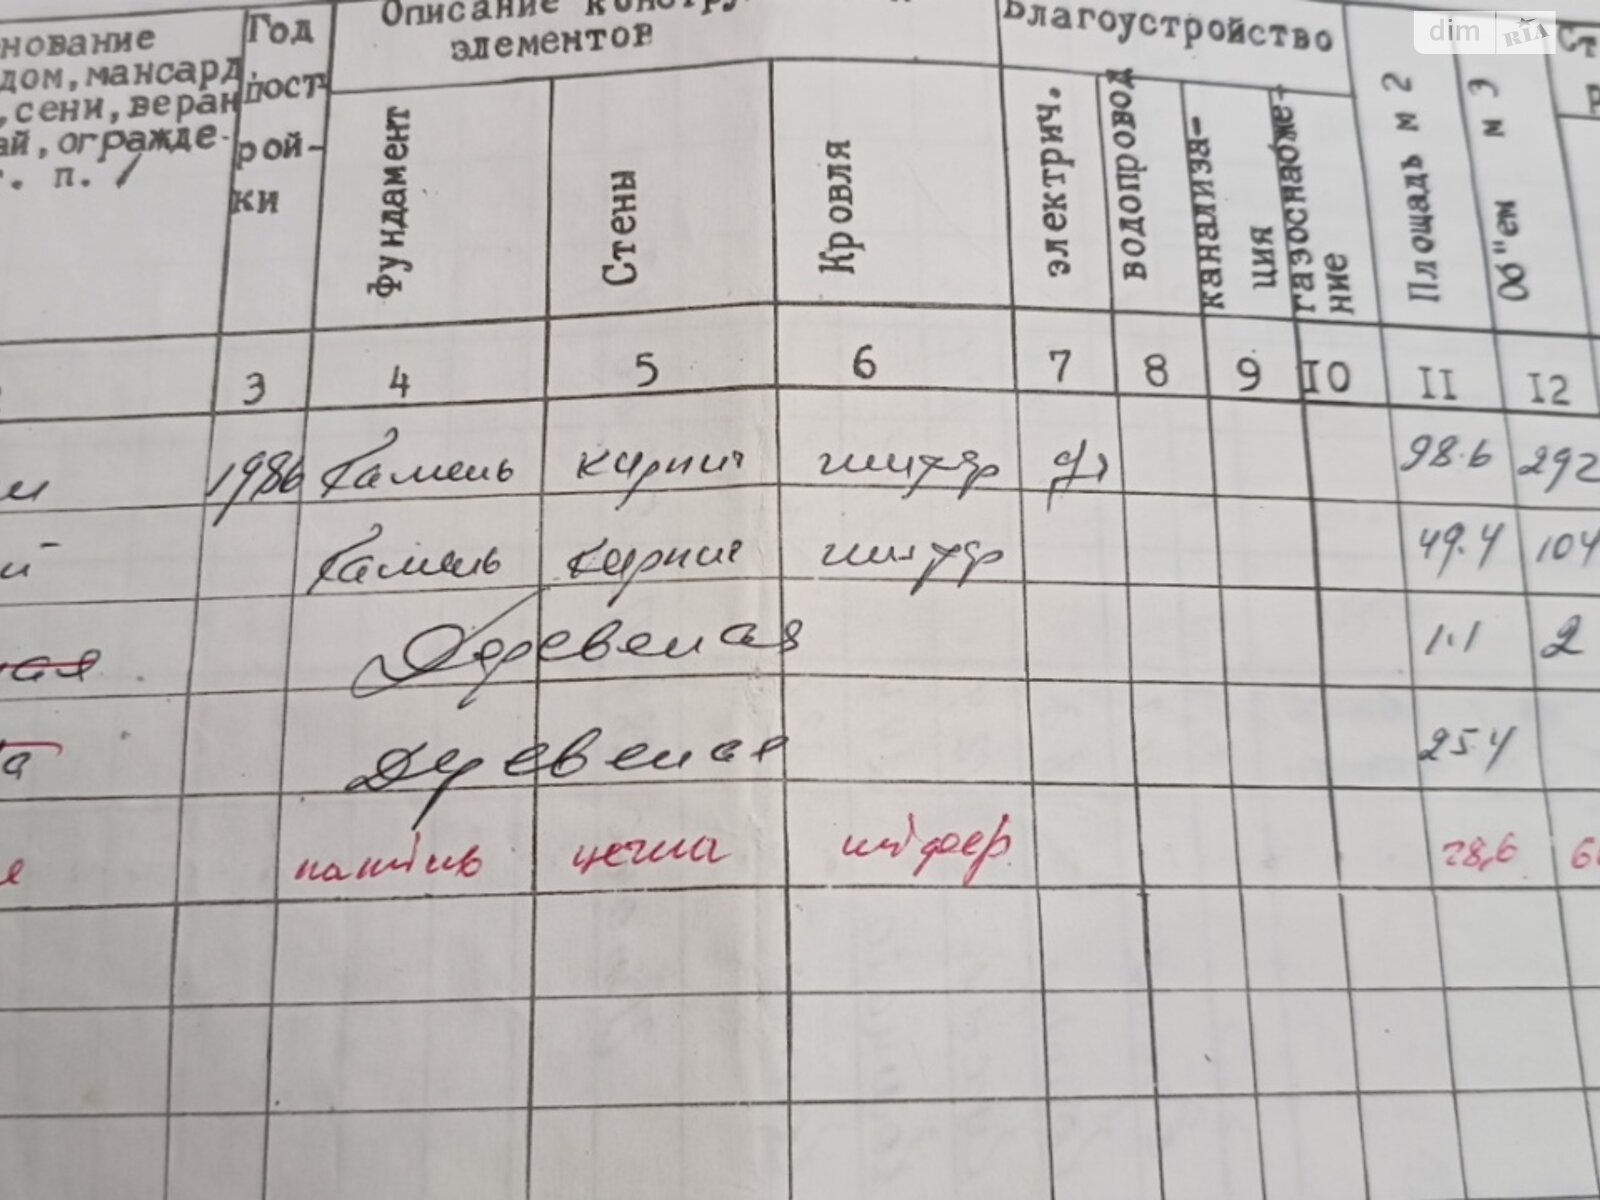 нование
дом, мансард
, сени, веран
ай, огражде-
. п. /
Год
пост
рой-
ки
Описание
элементов
Благоустройство
Фундамент
Стены
Кровля
электрич.
водопровод
канализа-
ция
газоснабже-
ние
Площадь м 2
Об"ем м 3
3 4 5 6 7 8 9 10 11 12
1986 Камень кирпич шифер 98.6 292
Камень кирпич шифер 49.4 104
Деревеная 1.1 2
Деревеная 25.4
цегла шифер 28,6
dim RIA